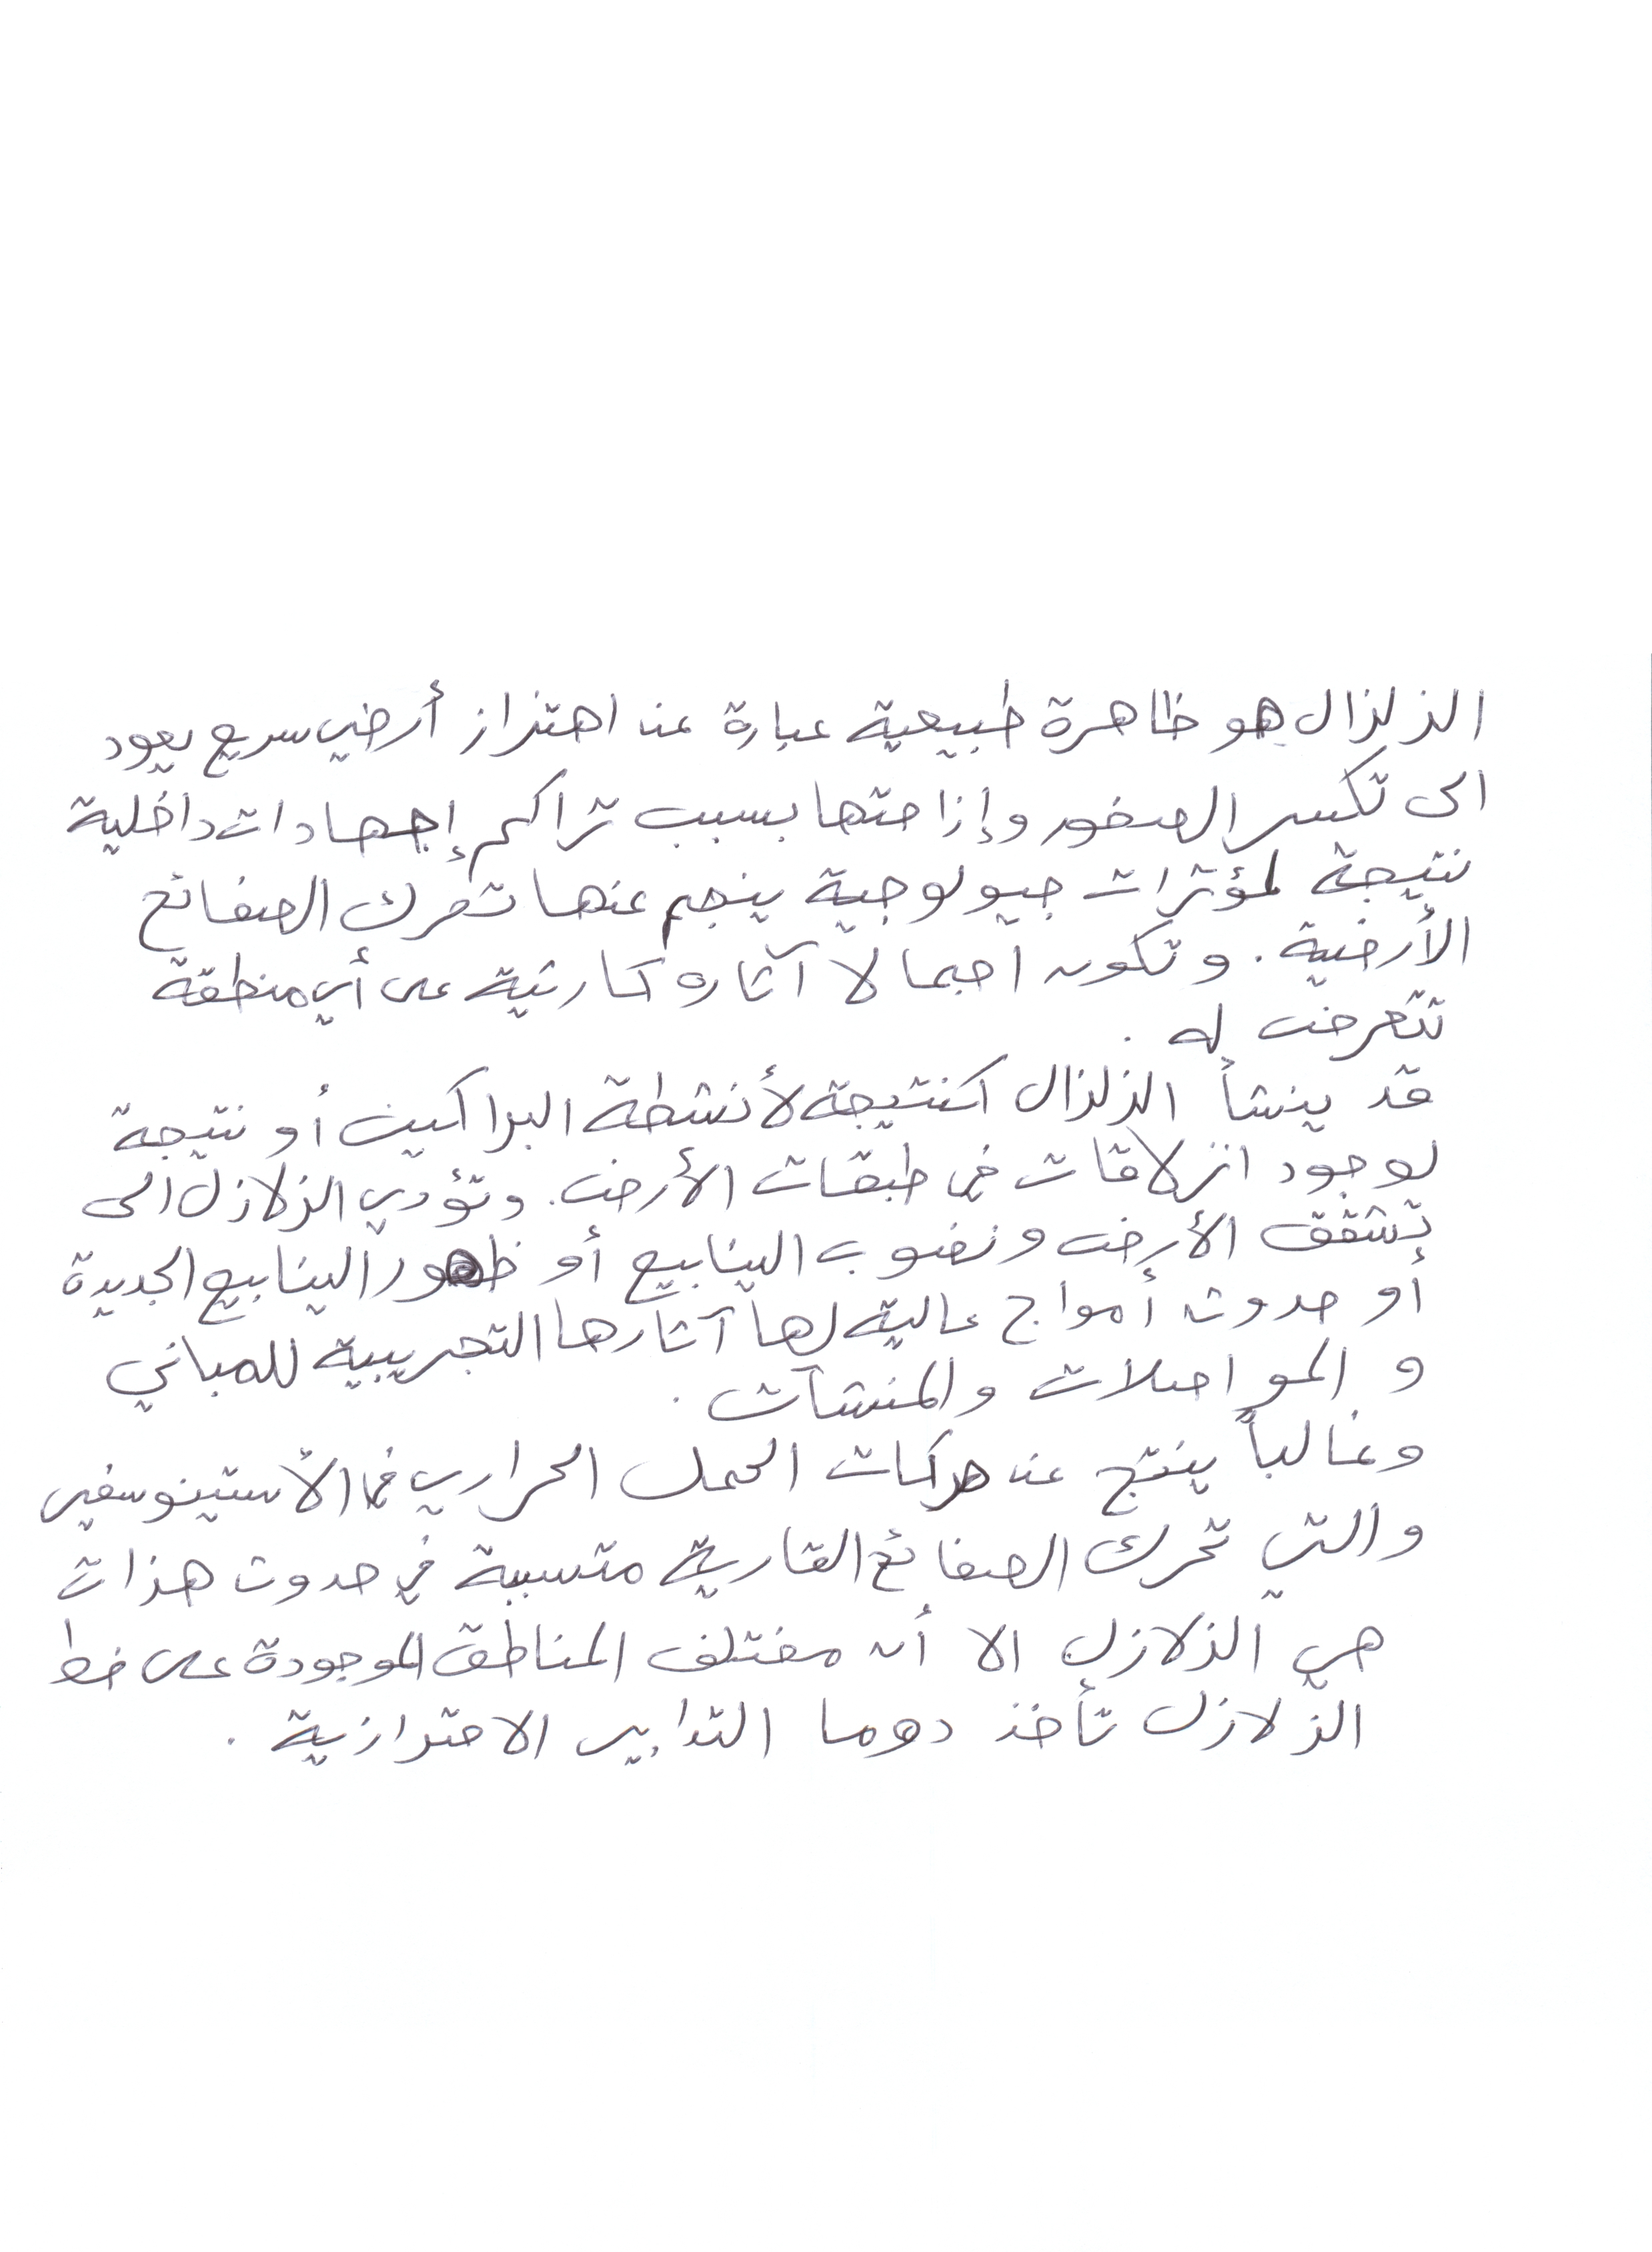 الزلزال هو ظاهرة طبيعية عبارة عن اهتزاز أرضي سريع يعود
الى تكسر الصخور وإزاحتها بسبب تراكم إجهادات داخلية
نتيجة لمؤثرات جيولوجية ينجم عنها تحرك الصفائح
الأرضية. وتكون اجمالا آثاره كارثية على أي منطقة
تتعرض له.
قد ينشأ الزلزال كنتيجة لأنشطة البراكين أو نتيجة
لوجود انزلاقات في طبقات الأرض. وتؤدي الزلازل الى
تشقق الأرض ونضوب الينابيع أو ظهور الينابيع الجديدة
أو حدوث أمواج عالية لها آثارها التخريبية للمباني
و المواصلات والمنشآت.
وغالباً ينتج عن حركات الحمل الحراري في الأستينوسفير
والتي تحرك الصفائح القارية متسببة في حدوث هزات
هي الزلازل الا أن مختلف المناطق الموجودة على خط
الزلازل تأخذ دوما التدابير الاحترازية.